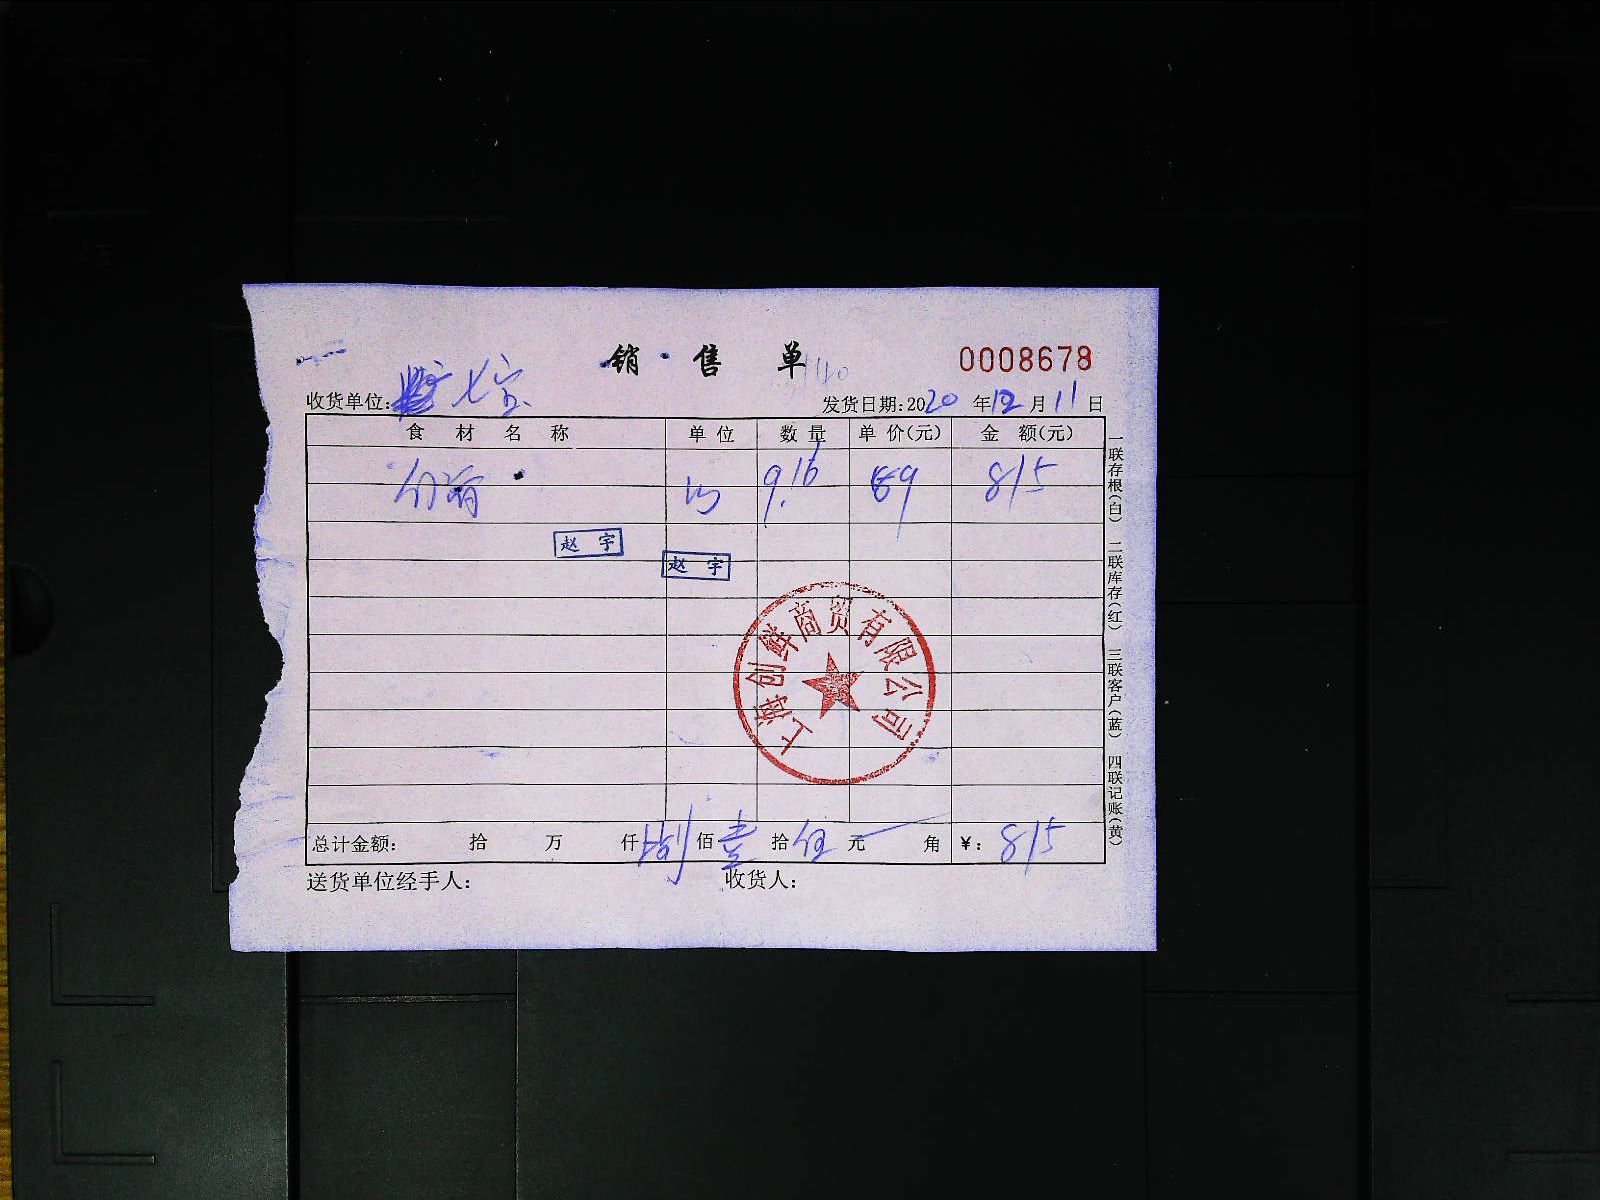 销售单
0008678
收货单位: 七宝
发货日期:2020年12月11日
食材名称 单位 数量 单价(元) 金额(元)
9.16 89 815
赵宇
赵宇
上海创鲜商贸有限公司
总计金额: 拾 万 仟 捌 佰 壹 拾 伍 元 角 ¥: 815
送货单位经手人: 收货人:
一联存根(白) 二联库存(红) 三联客户(蓝) 四联记账(黄)